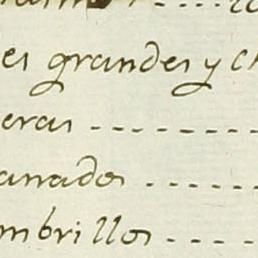 es grandes y ch
eras ----------
anados ------
mbrillos ----